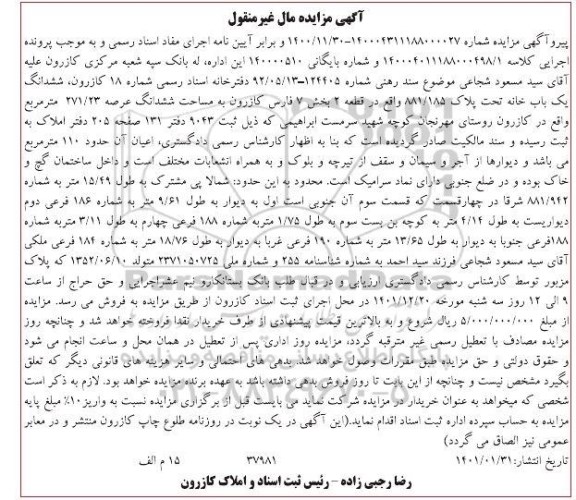 آگهی مزایده مال غیرمنقول
پیروآگهی مزایده شماره ۱۴۰۰۰۴۳۱۱۱۸۸۰۰۰۰۲۷-۱۴۰۰/۱۱/۳۰ و برابر آیین نامه اجرای مفاد اسناد رسمی و به موجب پرونده
اجرایی کلاسه ۱۴۰۰۰۴۰۱۱۱۸۸۰۰۰۴۹۸/۱ و شماره بایگانی ۱۴۰۰۰۰۵۱۰ این اداره، له بانک سپه شعبه مرکزی کازرون علیه
آقای سید مسعود شجاعی موضوع سند رهنی شماره ۱۲۴۴۰۵-۹۲/۰۵/۱۳ دفترخانه اسناد رسمی شماره ۱۸ کازرون، ششدانگ
یک باب خانه تحت پلاک ۸۸۱/۱۸۵ واقع در قطعه ۲ بخش ۷ فارس کازرون به مساحت ششدانگ عرصه ۲۷۱/۲۳ مترمربع
واقع در کازرون روستای مهرنجان کوچه شهید سرمست ابراهیمی که ذیل ثبت ۹۰۴۳ دفتر ۱۳۱ صفحه ۲۰۵ دفتر املاک به
ثبت رسیده و سند مالکیت صادر گردیده است که بنا به اظهار کارشناس رسمی دادگستری، اعیان آن حدود ۱۱۰ مترمربع
می باشد و دیوارها از آجر و سیمان و سقف از تیرچه و بلوک و به همراه انشعابات مختلف است و داخل ساختمان گچ و
خاک بوده و در ضلع جنوبی دارای نماد سرامیک است. محدود به این حدود: شمالا پی مشترک به طول ۱۵/۴۹ متر به شماره
۸۸۱/۹۴۲ شرقا در چهارقسمت که قسمت سوم آن جنوبی است اول به دیوار به طول ۹/۶۱ متر به شماره ۱۸۶ فرعی دوم
دیواریست به طول ۴/۱۴ متر به کوچه بن بست سوم به طول ۱/۷۵ متربه شماره ۱۸۸ فرعی چهارم به طول ۳/۱۱ متربه شماره
۱۸۸فرعی جنوبا به دیوار به طول ۱۳/۶۵ متر به شماره ۱۹۰ فرعی غربا به دیوار به طول ۱۸/۷۶ متر به شماره ۱۸۴ فرعی ملکی
آقای سید مسعود شجاعی فرزند سید احمد به شماره شناسنامه ۲۵۵ و شماره ملی ۲۳۷۱۰۵۰۷۲۵ متولد ۱۳۵۲/۰۶/۱۰ که پلاک
مزبور توسط کارشناس رسمی دادگستری ارزیابی و در قبال طلب بانک بستانکارو نیم عشراجرایی و حق حراج از ساعت
۹ الی ۱۲ روز سه شنبه مورخه ۱۴۰۱/۱۲/۲۰ در محل اجرای ثبت اسناد کازرون از طریق مزایده به فروش می رسد. مزایده
از مبلغ ۵/۰۰۰/۰۰۰/۰۰۰ ریال شروع و به بالاترین قیمت پیشنهادی از طرف خریدار نقدا فروخته خواهد شد و چنانچه روز
مزایده مصادف با تعطیل رسمی غیر مترقبه گردد، مزایده روز اداری پس از تعطیل در همان محل و ساعت انجام می شود
و حقوق دولتی و حق مزایده طبق مقررات وصول خواهد شد. بدهی های احتمالی و سایر هزینه های قانونی دیگر که تعلق
بگیرد مشخص نیست و چنانچه از این بابت تا روز فروش بدهی داشته باشد به عهده برنده مزایده خواهد بود. لازم به ذکر است
شخصی که میخواهد به عنوان خریدار در مزایده شرکت نماید می بایست قبل از برگزاری مزایده نسبت به واریز۱۰٪ مبلغ پایه
مزایده به حساب سپرده اداره ثبت اسناد اقدام نماید.(این آگهی در یک نوبت در روزنامه طلوع چاپ کازرون منتشر و در معابر
عمومی نیز الصاق می گردد)
تاریخ انتشار: ۱۴۰۱/۰۱/۳۱ ۳۷۹۸۱ ۱۵ م الف
رضا رجبی زاده – رئیس ثبت اسناد و املاک کازرون